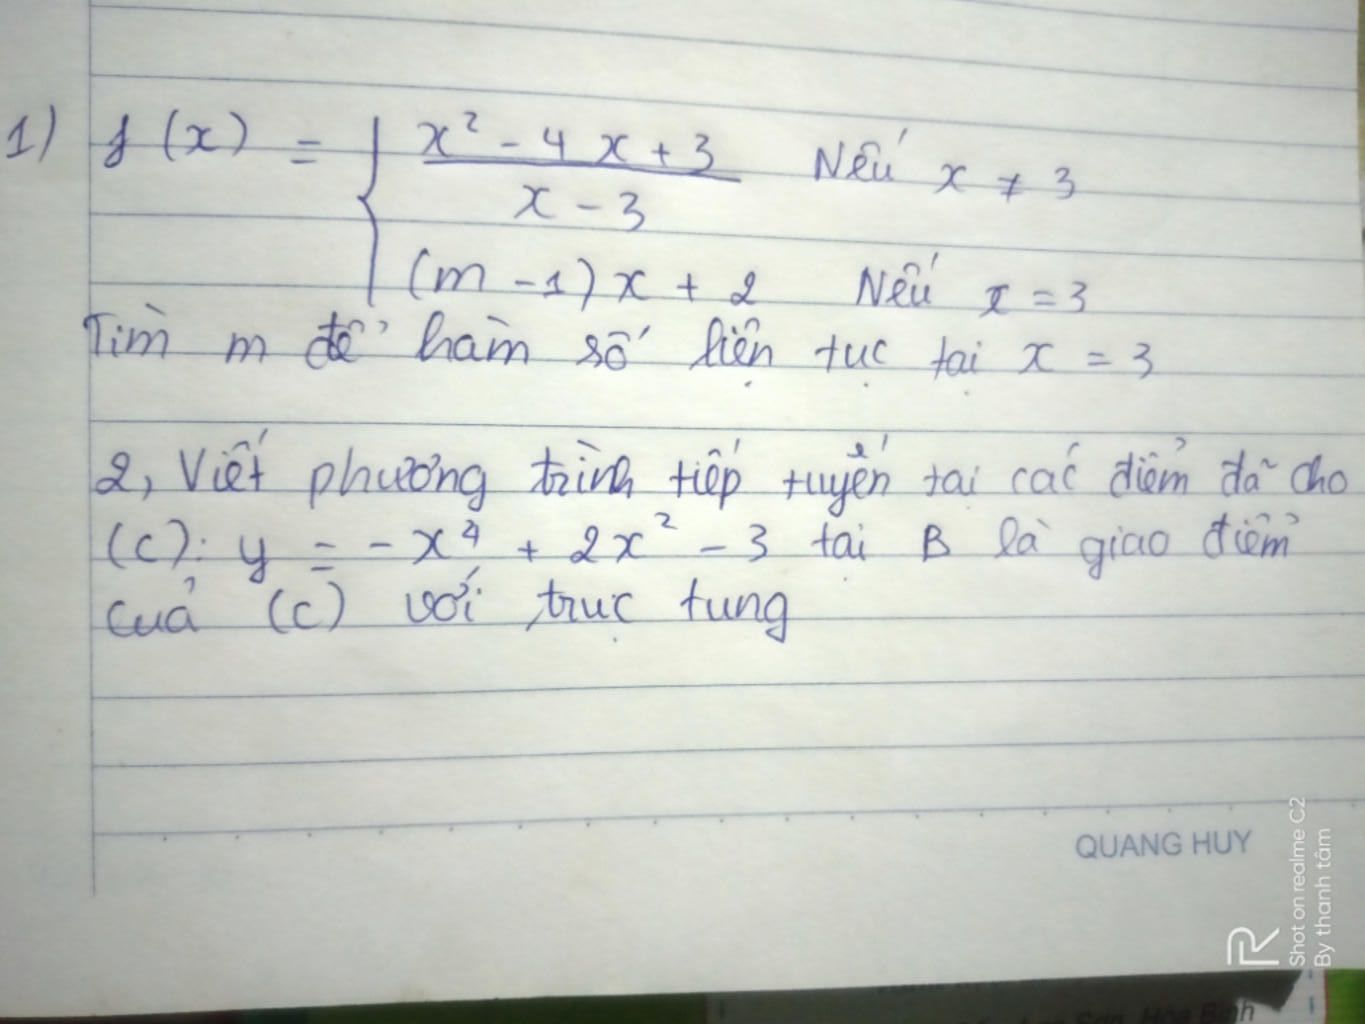 1) f(x) = { x² - 4x + 3 / x - 3 Nếu x ≠ 3
(m - 1)x + 2 Nếu x = 3
Tìm m để hàm số liên tục tại x = 3
2, Viết phương trình tiếp tuyến tại các điểm đã cho
(C): y = -x⁴ + 2x² - 3 tại B là giao điểm
của (C) với trục tung
QUANG HUY
Shot on realme C2
By thanh tâm